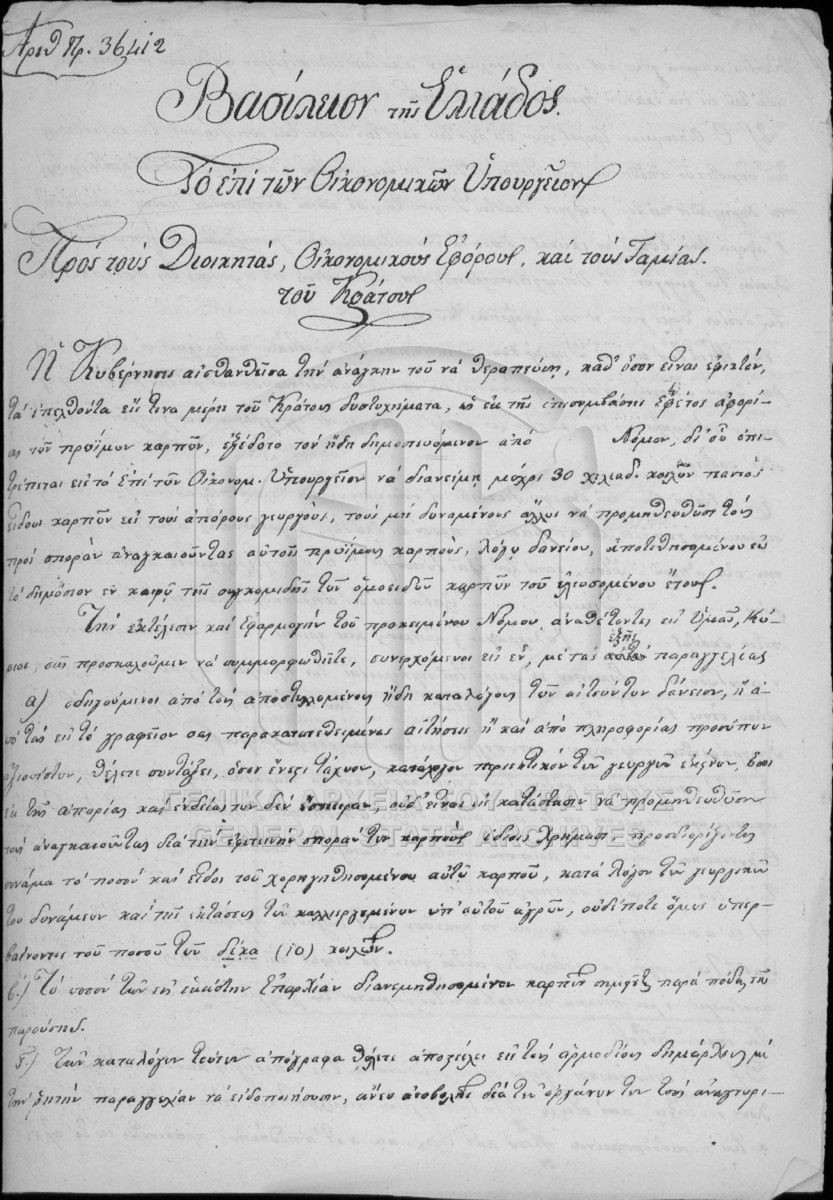 Αριθ Πρ. 36412
Βασίλειον τῆς Ἑλλάδος.
Τὸ ἐπὶ τῶν Οἰκονομικῶν Ὑπουργεῖον
Πρὸς τοὺς Διοικητὰς, Οἰκονομικοὺς Ἐφόρους, καὶ τοὺς Ταμίας.
τοῦ Κράτους
Ἡ Κυβέρνησις αἰσθανθεῖσα τὴν ἀνάγκην τοῦ νὰ θεραπεύσῃ, καθ' ὅσον εἶναι ἐφικτὸν,
τὰ ἐπελθόντα εἴς τινα μέρη τοῦ Κράτους δυστυχήματα, ὡς ἐκ τῆς ἐπισυμβάσης ἐφέτος ἀφορί-
ας τῶν πρωΐμων καρπῶν, ἐξέδοτο τὸν ἤδη δημοσιευόμενον ἀπὸ Νόμον, δι' οὗ ἐπι-
τρέπεται εἰς τὸ ἐπὶ τῶν Οἰκονομ. Ὑπουργεῖον νὰ διανείμῃ μέχρι 30 χιλιάδ. κοιλῶν παντὸς
εἴδους καρπῶν εἰς τοὺς ἀπόρους γεωργοὺς, τοὺς μὴ δυναμένους ἄλλως νὰ προμηθευθῶσι τοὺς
πρὸς σπορὰν ἀναγκαιοῦντας αὐτοῖς πρωΐμους καρποὺς, λόγῳ δανείου, ἀποτιθησομένου εἰς
τὸ δημόσιον ἐν καιρῷ τῆς συγκομιδῆς τῶν ὁμοειδῶν καρπῶν τοῦ ἐλευσομένου ἔτους.
Τὴν ἐκτέλεσιν καὶ ἐφαρμογὴν τοῦ προκειμένου Νόμου ἀναθέτοντες εἰς Ὑμᾶς, Κύ-
ριοι, σᾶς προσκαλοῦμεν νὰ συμμορφωθῆτε, συνερχόμενοι εἰς ἓν, μὲ τὰς ἑξῆς παραγγελίας
α) ὁδηγούμενοι ἀπὸ τοὺς ἀποστελλομένους ἤδη καταλόγους τῶν αἰτούντων δάνειον, ἢ ἀ-
πὸ τὰς εἰς τὸ γραφεῖον σας παρακατατεθειμένας αἰτήσεις ἢ καὶ ἀπὸ πληροφορίας προσώπων
ἀξιοπίστων, θέλετε συντάξει, ὅσον ἔνεστι τάχιον, κατάλογον περιεκτικὸν τῶν γεωργῶν ἐκείνων, ὅσοι
ἐκ τῆς ἀπορίας καὶ ἐνδείας των δὲν ἔσπειραν, οὐδ' εἶναι εἰς κατάστασιν νὰ προμηθευθῶσιν
τοὺς ἀναγκαιοῦντας διὰ τὴν ἐφετεινὴν σπορὰν των καρποὺς ἰδίοις χρήμασι, προσδιορίζοντες
συνάμα τὸ ποσὸν καὶ εἶδος τοῦ χορηγηθησομένου αὐτῷ καρποῦ, κατὰ λόγον τῶν γεωργικῶν
του δυνάμεων καὶ τῆς ἐκτάσεως τῶν καλλιεργημένων ὑπ' αὐτοῦ ἀγρῶν, οὐδέποτε ὅμως ὑπερ-
βαίνοντες τοῦ ποσοῦ τῶν δέκα (10) κοιλῶν.
β.) Τὸ ποσὸν τῶν εἰς ἑκάστην Ἐπαρχίαν διανεμηθησομένων καρπῶν σημειοῦται παρὰ πόδας τῆς
παρούσης.
γ.) Τῶν καταλόγων τούτων ἀπόγραφα θέλετε ἀποστείλει εἰς τοὺς ἁρμοδίους δημάρχους μὲ
τὴν ῥητὴν παραγγελίαν νὰ εἰδοποιήσωσιν, ἄνευ ἀναβολῆς διὰ τῶν ὀργάνων των τοὺς ἀναγνωρι-
ΓΕΝΙΚΑ ΑΡΧΕΙΑ ΤΟΥ ΚΡΑΤΟΥΣ
GENERAL STATE ARCHIVES